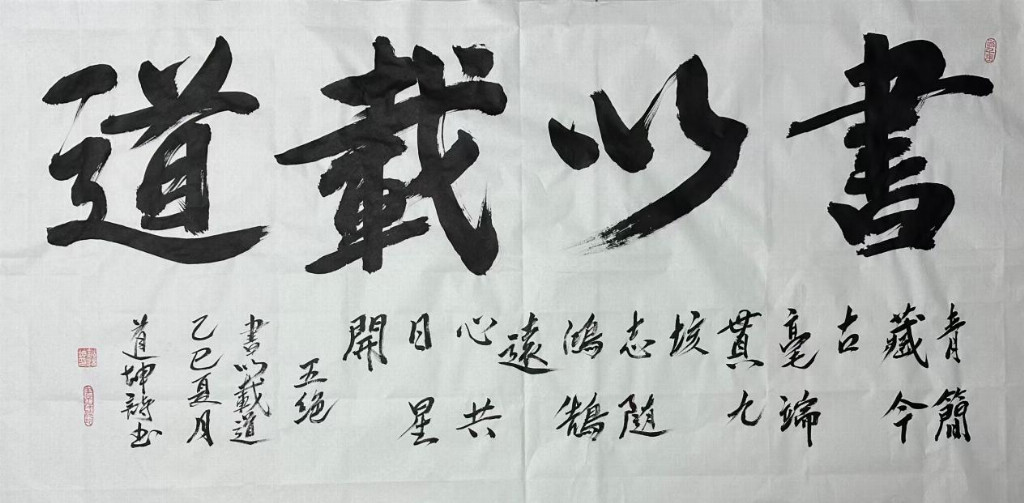 書以載道
青簡
藏今
古
毫端
貫九
垓
志随
鴻鵠
遠
心共
日星
開
五绝
書以載道
乙巳夏月
道坤詩书